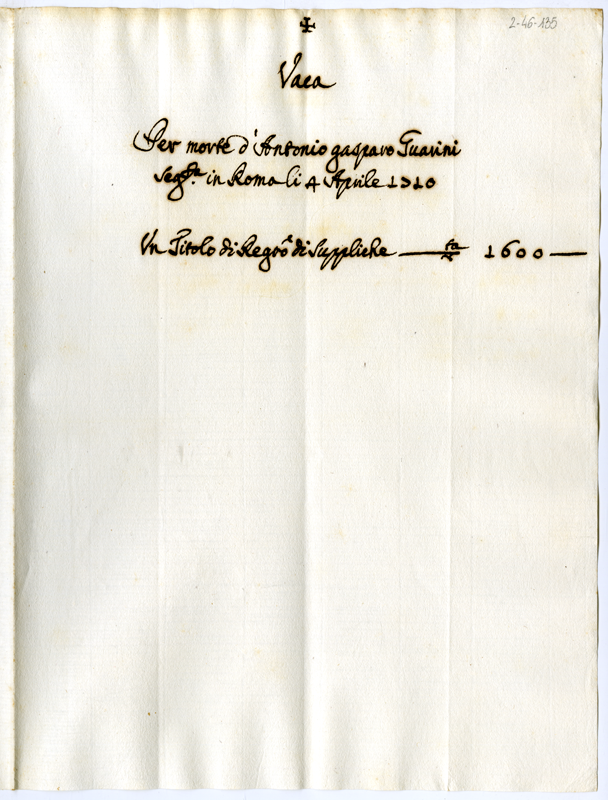 2-46-135
✠
Vaca
Per morte d'Antonio gasparo Guarini
Seg.ta in Roma li 4 Aprile 1710
Un Titolo di Regro.e di Suppliche — 1600 —